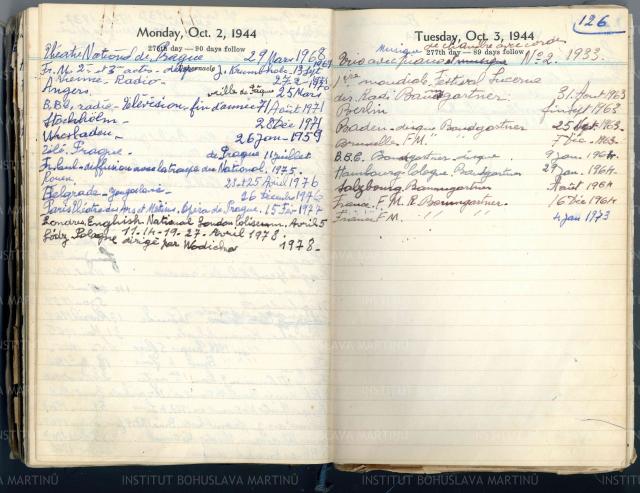 Monday, Oct. 2, 1944
276th day — 90 days follow
Théâtre National de Prague 29 Mars 1968
Fr. M. 2 et 3 acts. J. Krumbholz. 13 Sept
Vienne Radio 27-3-1970
Angers. ville de Prague 25 Mars
B.B.C. radio-télévision, fin d'année 71 Août 1971
Stockholm - 28 Déc 1971
Wiesbaden - 26 Jan-1959
Télé. Prague. de Prague 11 juillet
Finland-diffusion avec la troupe du National. 1975.
Rouen. 23 et 25 Avril 1976
Belgrade-Yougoslavie- 26 Décembre 1976
Paris Théâtre des Arts et Métiers. Opéra de Prague. 15 Fév-1977
Londres English National London Coliseum. Avril 5
11-14-19-27-Avril 1978.
Lódz Pologne dirigé par Wodiczko 1978-
Tuesday, Oct. 3, 1944
277th day — 89 days follow
126
musique de chambre avec cordes
Trio avec piano N°2. 1933.
1ère mondiale, Festival Lucerne
des Radi Baumgartner. 31 Août 1963
Berlin fin Sept 1963
Baden-disque Baumgartner 25 Sept 1963.
Bruxelles. F.M. 7 Déc. 1963.
B.B.C. Baumgartner-disque 9 janv 1964
Hambourg-Cologne. Baumgartner 29 Jan. 1964
Salzbourg. Baumgartner Août 1964
France. F.M. R. Baumgartner. 16 Déc 1964
France F.M. " " " 4 Jan 1973
INSTITUT BOHUSLAVA MARTINŮ
INSTITUT BOHUSLAVA MARTINŮ